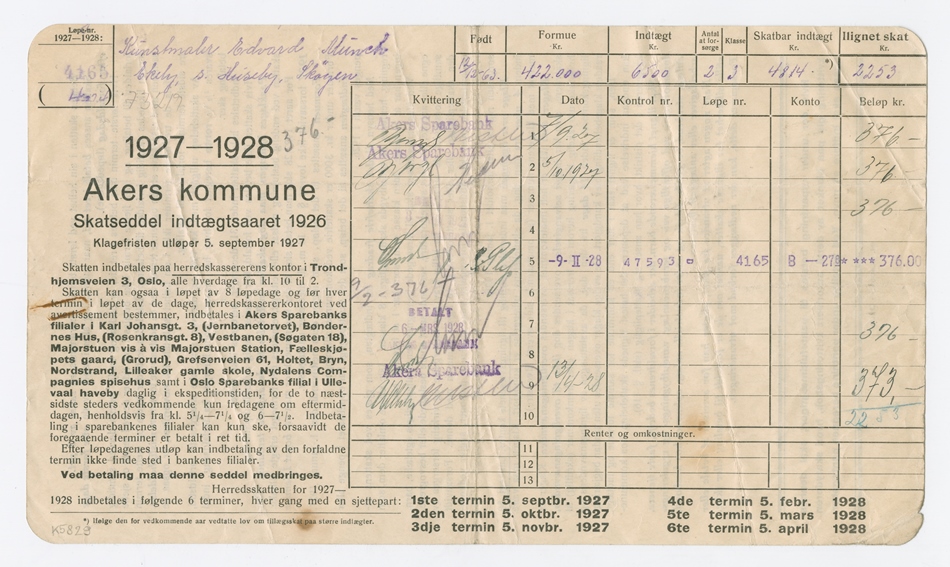 Løpe-nr.
1927—1928:
4165
Kunstmaler Edvard Munch
Ekely s. Huseby, Skøyen
Født
12/12 63.
Formue
Kr.
422.000
Indtægt
Kr.
6500
Antal
at for-
sørge
2
Klasse
3
Skatbar indtægt
Kr.
4814. *)
Ilignet skat
Kr.
2253
1927—1928
376.-
Akers kommune
Skatseddel indtægtsaaret 1926
Klagefristen utløper 5. september 1927
Skatten indbetales paa herredskassererens kontor i Trond-
hjemsveien 3, Oslo, alle hverdage fra kl. 10 til 2.
Skatten kan ogsaa i løpet av 8 løpedage og før hver
termin i løpet av de dage, herredskassererkontoret ved
avertissement bestemmer, indbetales i Akers Sparebanks
filialer i Karl Johansgt. 3, (Jernbanetorvet), Bønder-
nes Hus, (Rosenkransgt. 8), Vestbanen, (Søgaten 18),
Majorstuen vis à vis Majorstuen Station, Fælleskjø-
pets gaard, (Grorud), Grefsenveien 61, Holtet, Bryn,
Nordstrand, Lilleaker gamle skole, Nydalens Com-
pagnies spisehus samt i Oslo Sparebanks filial i Ulle-
vaal haveby daglig i ekspeditionstiden, for de to næst-
sidste steders vedkommende kun fredagene om eftermid-
dagen, henholdsvis fra kl. 5¼—7¼ og 6—7½. Indbeta-
ling i sparebankenes filialer kan kun ske, forsaavidt de
foregaaende terminer er betalt i ret tid.
Efter løpedagenes utløp kan indbetaling av den forfaldne
termin ikke finde sted i bankenes filialer.
Ved betaling maa denne seddel medbringes.
Kvittering
Dato
Kontrol nr.
Løpe nr.
Konto
Beløp kr.
Akers Sparebank
5/9.27
376—
Akers Sparebank
2
5/10 1927
376
3
376—
4
5
-9-II-28
47593
4165
B —278
***376.00
6
9/2-376
BETALT
7
376—
8
Akers Sparebank
9
13/4-28
373,-
10
22 53
Renter og omkostninger.
11
12
13
Herredsskatten for 1927—
1928 indbetales i følgende 6 terminer, hver gang med en sjettepart:
1ste termin 5. septbr. 1927
2den termin 5. oktbr. 1927
3dje termin 5. novbr. 1927
4de termin 5. febr. 1928
5te termin 5. mars 1928
6te termin 5. april 1928
*) Ifølge den for vedkommende aar vedtatte lov om tillægsskat paa større indtægter.
K5829